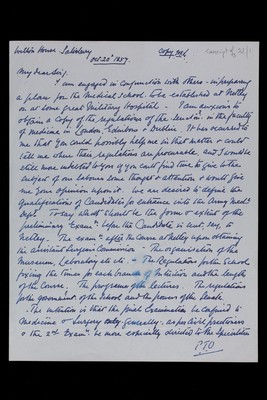 Wilton House, Salisbury
Copy ref.
Oct 20th 1857.
My dear Sir,
I am engaged in conjunction with others in preparing
a plan for the Medical School to be established at Netley
or at some great Military Hospital. I am anxious to
obtain a Copy of the regulations of the Senate in the faculty
of Medicine in London, Edinboro & Dublin. It has occurred to
me that you could possibly help me in that matter & could
tell me where their regulations are procurable and I should be
still more indebted to you if you could find time to give to the
subject of our labours some thought & attention & would give
me your opinion upon it. We are desired to define the
Qualifications of Candidates for entrance into the Army Medl.
Dept. To say what should be the form & extent of the
preliminary "Exam" before the Candidate is sent, say, to
Netley. The exam after the Course at Netley upon obtaining
the assistant Surgeons Commission. The organisation of the
Museum, Laboratory etc etc. The Regulations for the School
fixing the times for each branch of tuition and the length
of the Course. The programme of the lectures. The regulations
for the government of the School and the powers of the Senate.
The intention is that the first Examination be confined to
Medicine & Surgery only generally, as for civil practioners
& the 2nd Exam be more especially directed to the Specialities
P.T.O